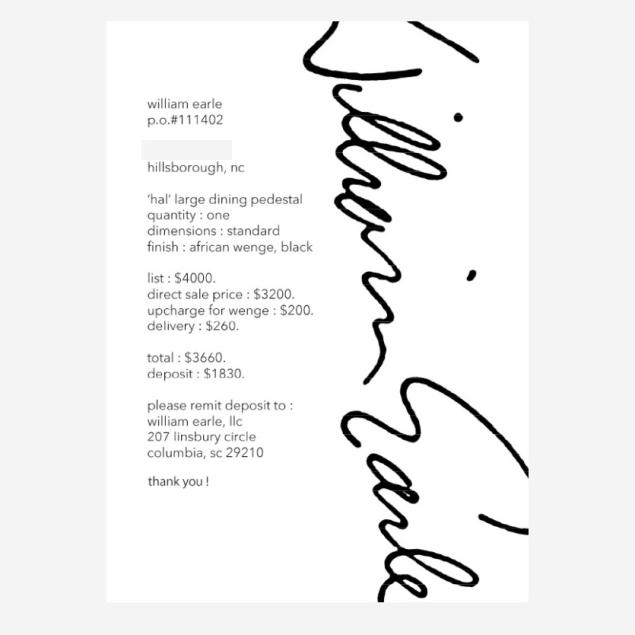 william earle
p.o.#111402
hillsborough, nc
'hal' large dining pedestal
quantity : one
dimensions : standard
finish : african wenge, black
list : $4000.
direct sale price : $3200.
upcharge for wenge : $200.
delivery : $260.
total : $3660.
deposit : $1830.
please remit deposit to :
william earle, llc
207 linsbury circle
columbia, sc 29210
thank you !
William Earle